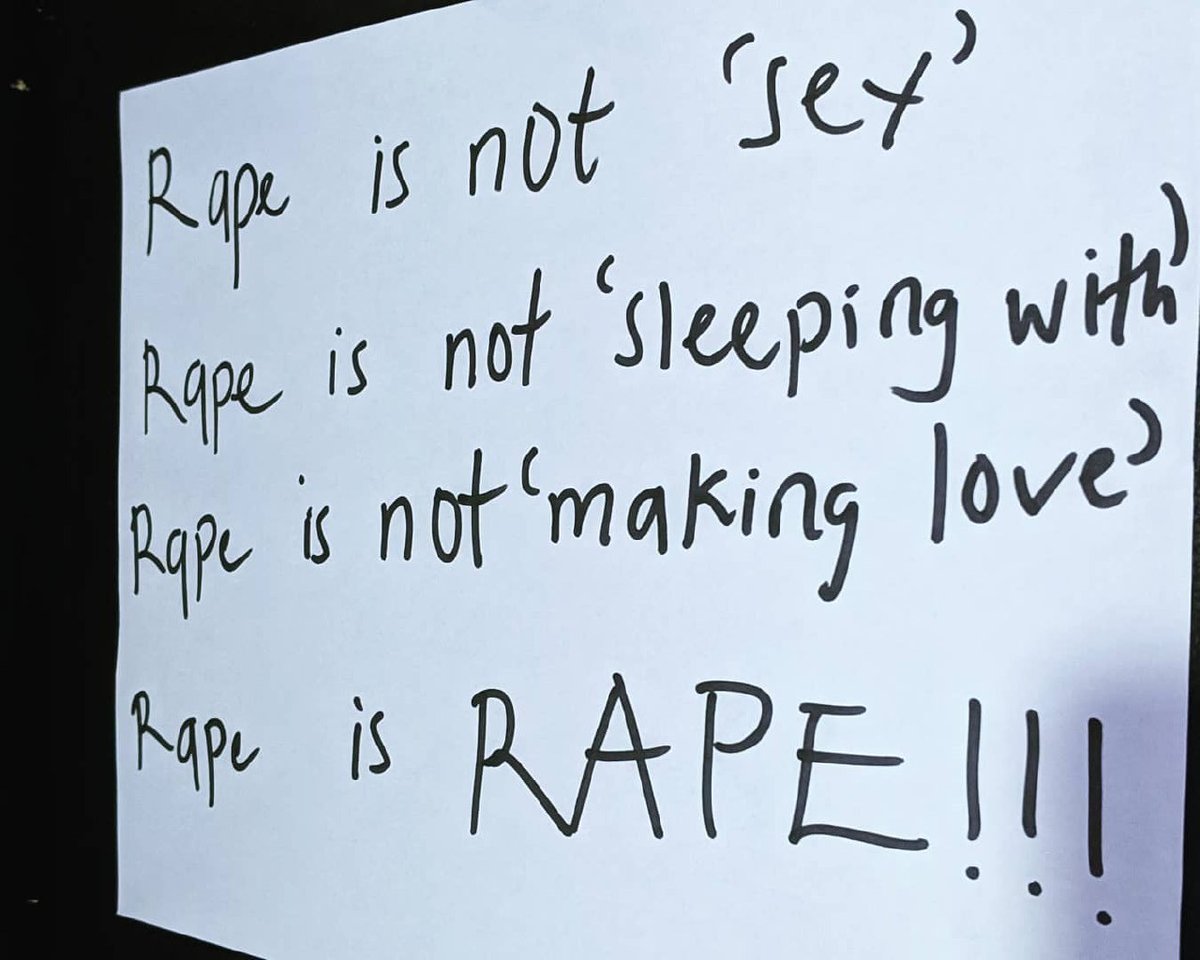 Rape is not 'sex'
Rape is not 'sleeping with'
Rape is not 'making love'
Rape is RAPE!!!